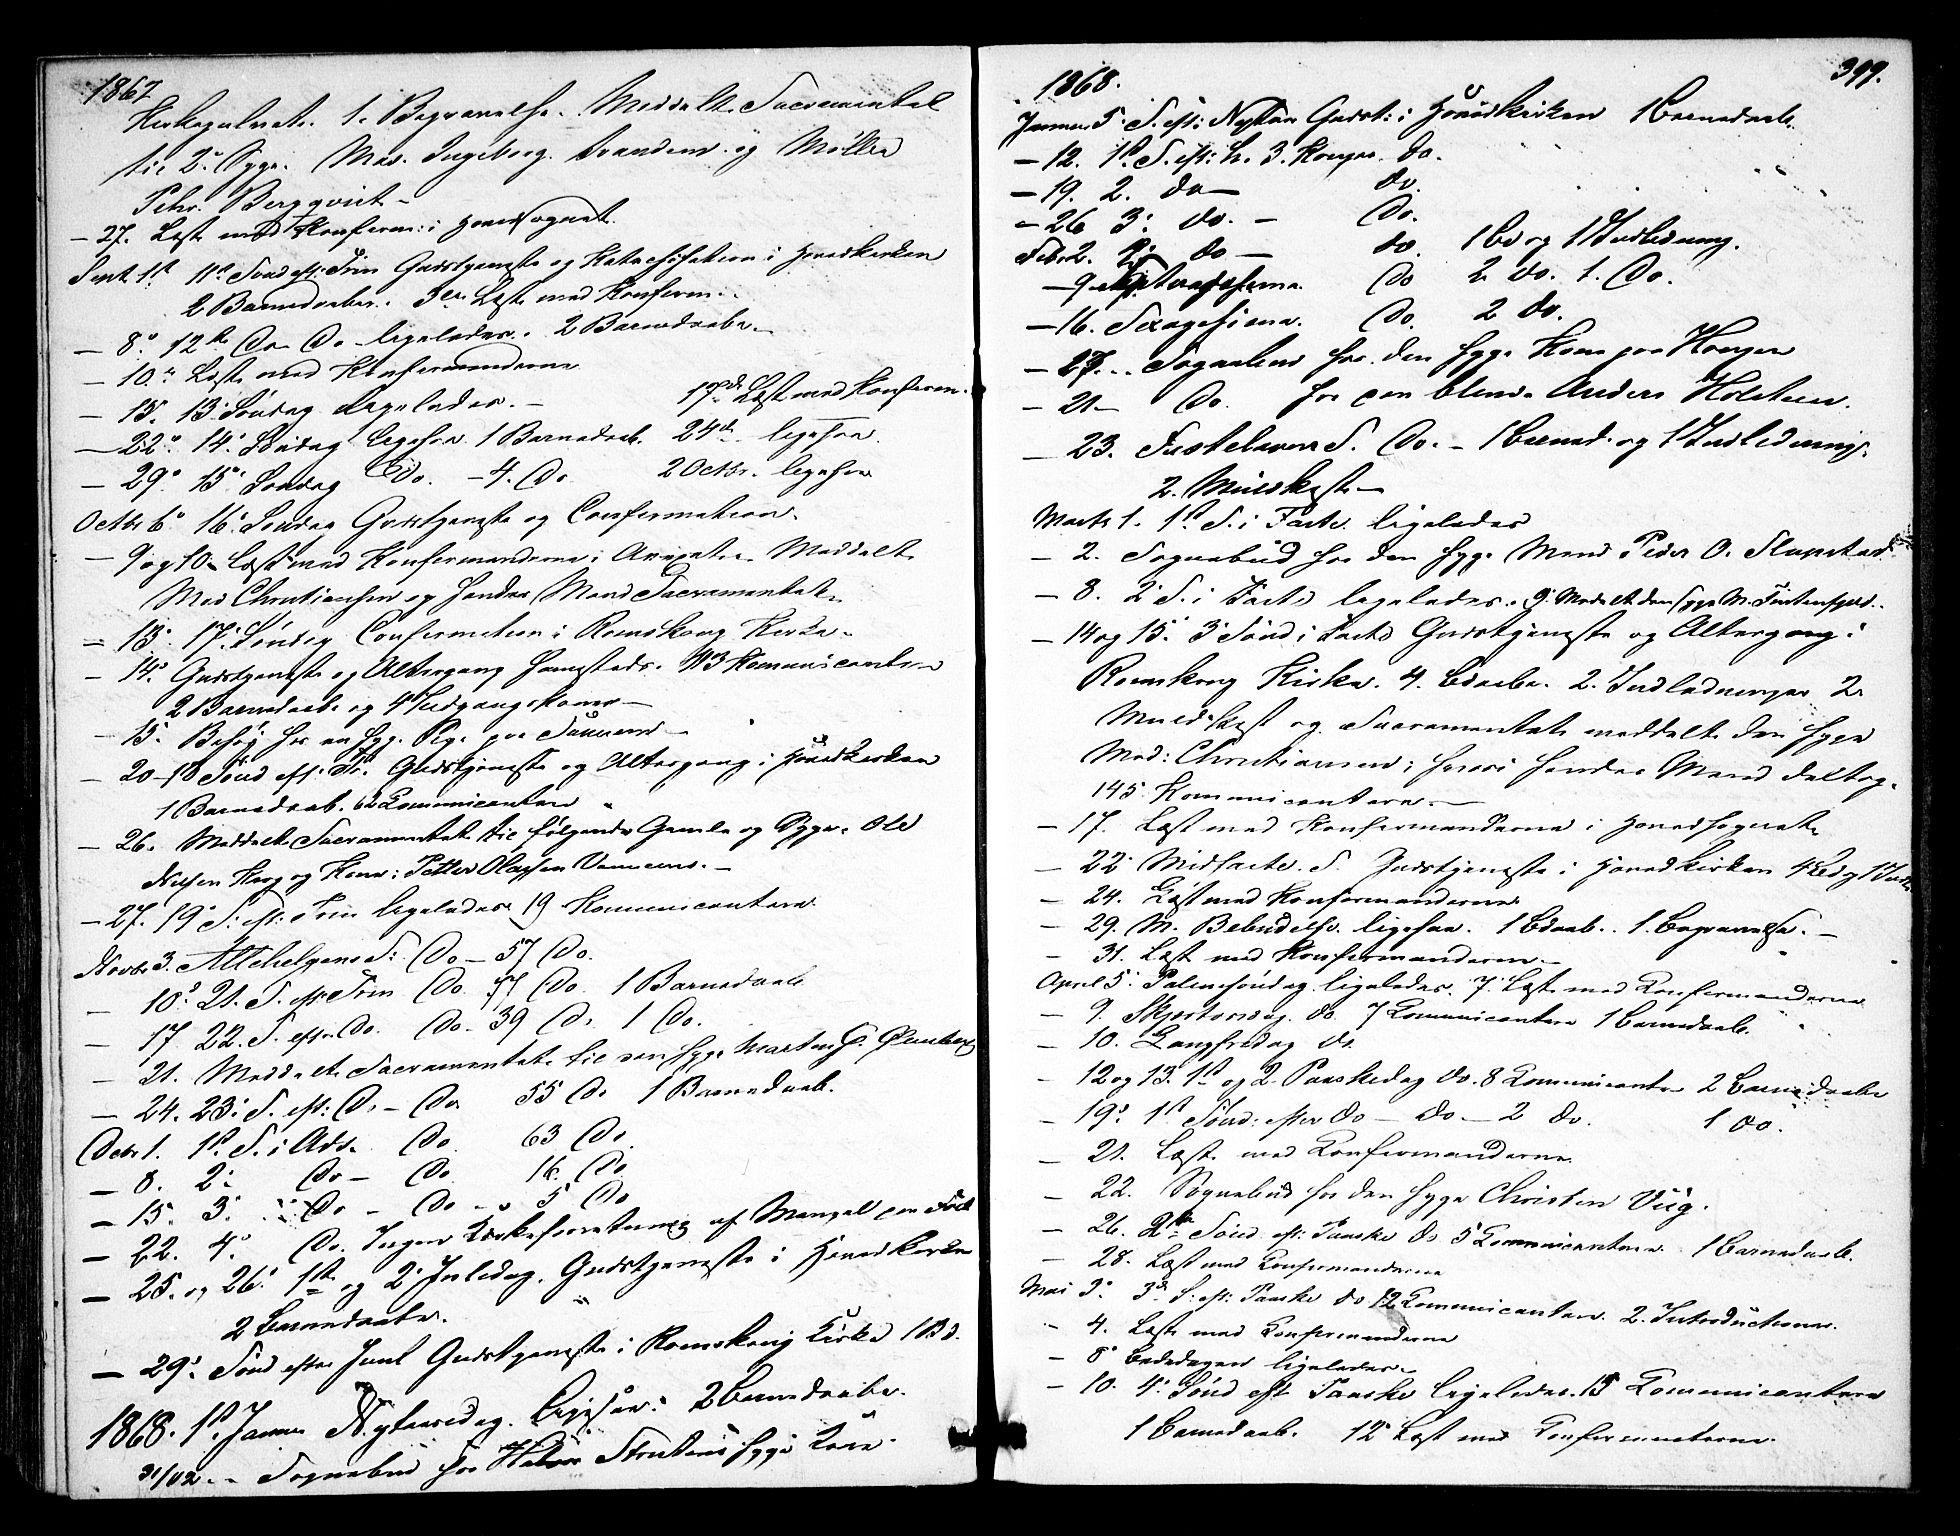 1867
Kirkegulvet. 1. Begravelse. Meddelt Sacramentet
til 2 Syge. Mad. Ingeborg Svendsen og Møller
Pehr Bergqvist –
– 27. Læst med Konferm: i Hovedsognet.
Sept 1st 11te Sønd eft: Trin Gudstjeneste og Katechisation i Hovedkirken
2 Barnedaaber. 3die Læst med Konferm.
– 8de 12te Do Do ligeledes. 2 Barnedaabe.
– 10de Læst med Konfermanderne
– 15. 13. Søndag ligeledes. – 17de Læst med Konferm.
– 22de 14. Søndag ligesaa 1 Barnedaab. 24de ligesaa.
– 29de 15. Søndag Do. – 4. Do 2 Octbr. ligesaa
Octbr 6. 16. Søndag Gudstjeneste og Confermation.
– 9 og 10. Læst med Konfermanderne i Annexet. Meddelt
Mad Christiansen og hendes Mand Sacramentet.
– 13. 17. Søndag Confermation i Romskoug Kirke.
– 14. Gudstjeneste og Altergang samesteds. 113 Komunicantere
2 Barnedaab og 4 Indgangskoner –
– 15. Besøg hos en syg Pige paa
– 20 – 18 Sønd eft: Tr. Gudstjeneste og Altergang i Hovedkirken
1 Barnedaab. 62 Communicantere
– 26. Meddelt Sacramentet til følgende Gamle og Syge. Ole
Nilsen Krog og Kone: Petter Olafsen –
– 27. 19. S. eft: Trin ligeledes 19 Kommunicantere
Novbr 3. Allehelgens S: Do – 57 Do.
– 10. 21. S. eft Trin Do. 77 Do. 1 Barnedaab
– 17. 22. S. eft. Do. Do. 39 Do. 1 Do.
– 21. Meddelt Sacramentet til den syge Marten
– 24. 23. S. eft: Do – Do 55 Do 1 Barnedaab.
Decbr 1. 1st S. i Adv. Do. 63 Do
– 8. 2. Do – Do 16. Do
– 15. 3. Do – Do – 5 Do
– 22. 4. Do. Ingen Kirkeforretning af Mangel paa Folk
– 25. og 26. 1ste og 2. Juledag. Gudstjeneste i Hovedkirken
2 Barnedaabe.
– 29. Sønd efter Juul Gudstjeneste i Romskoug Kirke 1 Bd.
1868. 1st Januar Nytaarsdag. Ligesaa: 2 Barnedaabe.
– Sognebud hos syge Kone.
399.
1868.
Januar 5. S. eft: Nytaar Gudst: i Hovedkirken 1 Barnedaab.
– 12. 1st S. eft: H. 3. Konger do.
– 19. 2. do – do.
– 26 3. do. – Do.
Febr 2. 4. do – do 1 Bd og 1 Indledning.
– 9 Septuagesima. Do 2 do. 1. Do.
– 16. Sexagesima. Do. 2 do.
– 27. Sognebud hos den syge Kone paa
– 21 – Do. hos den blinde Anders Holsteen.
– 23. Fastelavns S. Do. – 1 Barned. og 1 Indledning.
2. Muldkast –
Marts 1. 1st S. i Faste ligeledes
– 2. Sognebud hos den syge Mand Peder O.
– 8. 2. S. i Faste ligeledes. 9. Meddelt den syge M.
– 14 og 15. 3. Sønd i Faste Gudstjeneste og Altergang i
Romskoug Kirke. 4. Bdaabe. 2. Indledninger 2
Muldkast og Sacramentet meddelt den syge
Mad: Christiansen; hvori hendes Mand deltog.
145 Kommunicantere. –
– 17. Læst med Konfermanderne i Hovedsognet.
– 22 Midfaste S. Gudstjeneste i Hovedkirken 4 Bd og 1 Indl.
– 24. Læst med Konfermanderne
– 29. M. Bebudelse ligesaa. 1 Bdaab. 1. Begravelse. –
– 31. Læst med Konfermanderne. –
April 5. Palmesøndag ligeledes. 7. Læst med Konfermanderne
– 9. Skjertorsdag. do. 7 Communicantere 1 Barnedaab.
– 10. Langfredag do.
– 12 og 13. 1st og 2. Paaskedag do. 8 Communicantere 2 Barnedaabe
– 19. 1st Sønd: efter do – do – 2 do. 1 do.
– 21. Læst med Konfermanderne
– 22. Sognebud hos den syge Christen Viig.
– 26. 2den Sønd. eft: Paaske do 5 Communicantere 1 Barnedaab.
– 28. Læst med Konfermanderne
Mai 3. 3d S. eft: Paaske do 12 Communicantere. 2. Introductioner.
– 4. Læst med Konfermanderne
– 8 Bededagen ligeledes.
– 10. 4. Sønd eft Paaske ligeledes. 15 Communicantere
1 Barnedaab. 12 Læst med Konfermanterne.